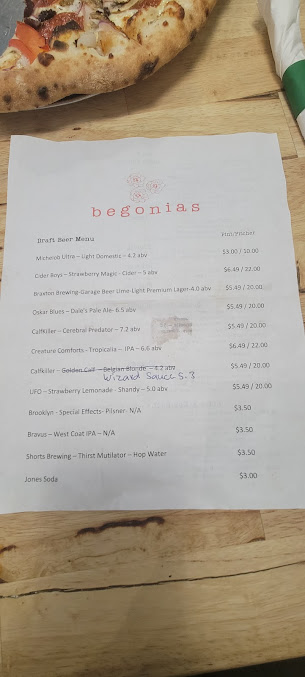 begonias
Draft Beer Menu Pint/Pitcher
Michelob Ultra – Light Domestic – 4.2 abv $3.00 / 10.00
Cider Boys – Strawberry Magic - Cider – 5 abv $6.49 / 22.00
Braxton Brewing-Garage Beer Lime-Light Premium Lager-4.0 abv $5.49 / 20.00
Oskar Blues – Dale's Pale Ale- 6.5 abv $5.49 / 20.00
Calfkiller – Cerebral Predator – 7.2 abv $5.49 / 20.00
Creature Comforts - Tropicalia – IPA – 6.6 abv $6.49 / 22.00
Calfkiller – Golden Calf – Belgian Blonde – 4.2 abv $5.49 / 20.00
Wizard Sauce 5.3
UFO – Strawberry Lemonade - Shandy – 5.0 abv $5.49 / 20.00
Brooklyn - Special Effects- Pilsner- N/A $3.50
Bravus – West Coat IPA – N/A $3.50
Shorts Brewing – Thirst Mutilator – Hop Water $3.50
Jones Soda $3.00